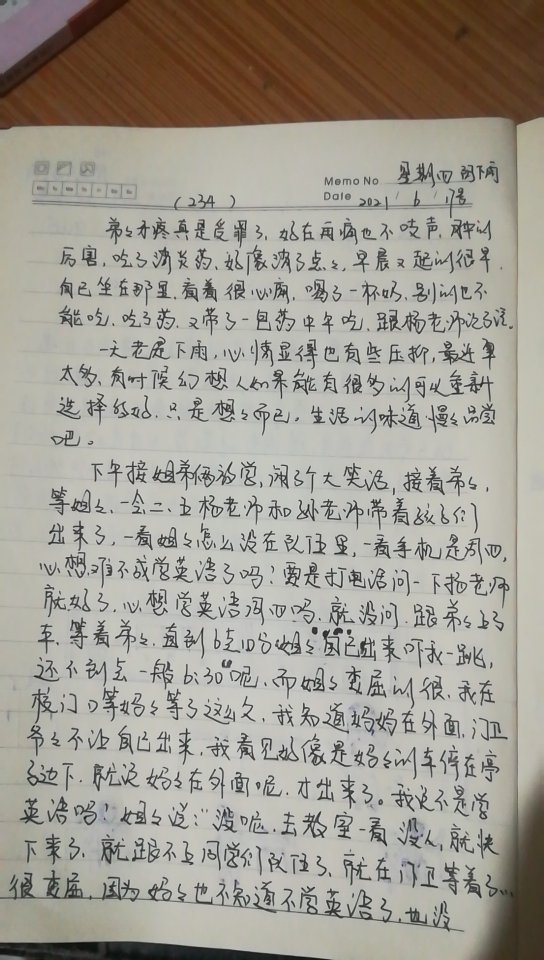 Mo Tu We Th Fr Sa Su
Memo No 星期四 阴下雨
(234) Date 2021 6 17号
弟々牙疼真是受罪了,好在再痛也不吱声,肿的
厉害,吃了消炎药,好像消了点々,早晨又起的很早,
自己坐在那里,看着很心痛,喝了一杯奶,别的也不
能吃,吃了药,又带了一包药中午吃,跟杨老师说了说。
一天老是下雨,心情显得也有些压抑,最近事
太多,有时候幻想人如果能有很多的可以重新
选择的好,只是想々而已。生活的味道慢々品尝
吧。
下午接姐弟俩放学,闹了个大笑话,接着弟々,
等姐々,一会二、五杨老师和孙老师带着孩子们
出来了,一看姐々怎么没在队伍里,一看手机是周四,
心想难不成学英语了吗?要是打电话问一下杨老师
就好了,心想学英语周四吗,就没问,跟弟々上了
车,等着弟々,直到6点10分姐々自己出来吓我一跳,
还不到点一般6:30呢,而姐々委屈的很,我在
校门口等妈々等了这么久,我知道妈妈在外面,门卫
爷々不让自己出来,我看见好像是妈々的车停在亭
子边下,就说妈々在外面呢,才出来了。我说不是学
英语吗?姐々说:"没呢,去教室一看没人,就快
下来了,就跟不上同学们队伍了,就在门卫等着了…
很委屈,因为妈々也不知道不学英语了,也没